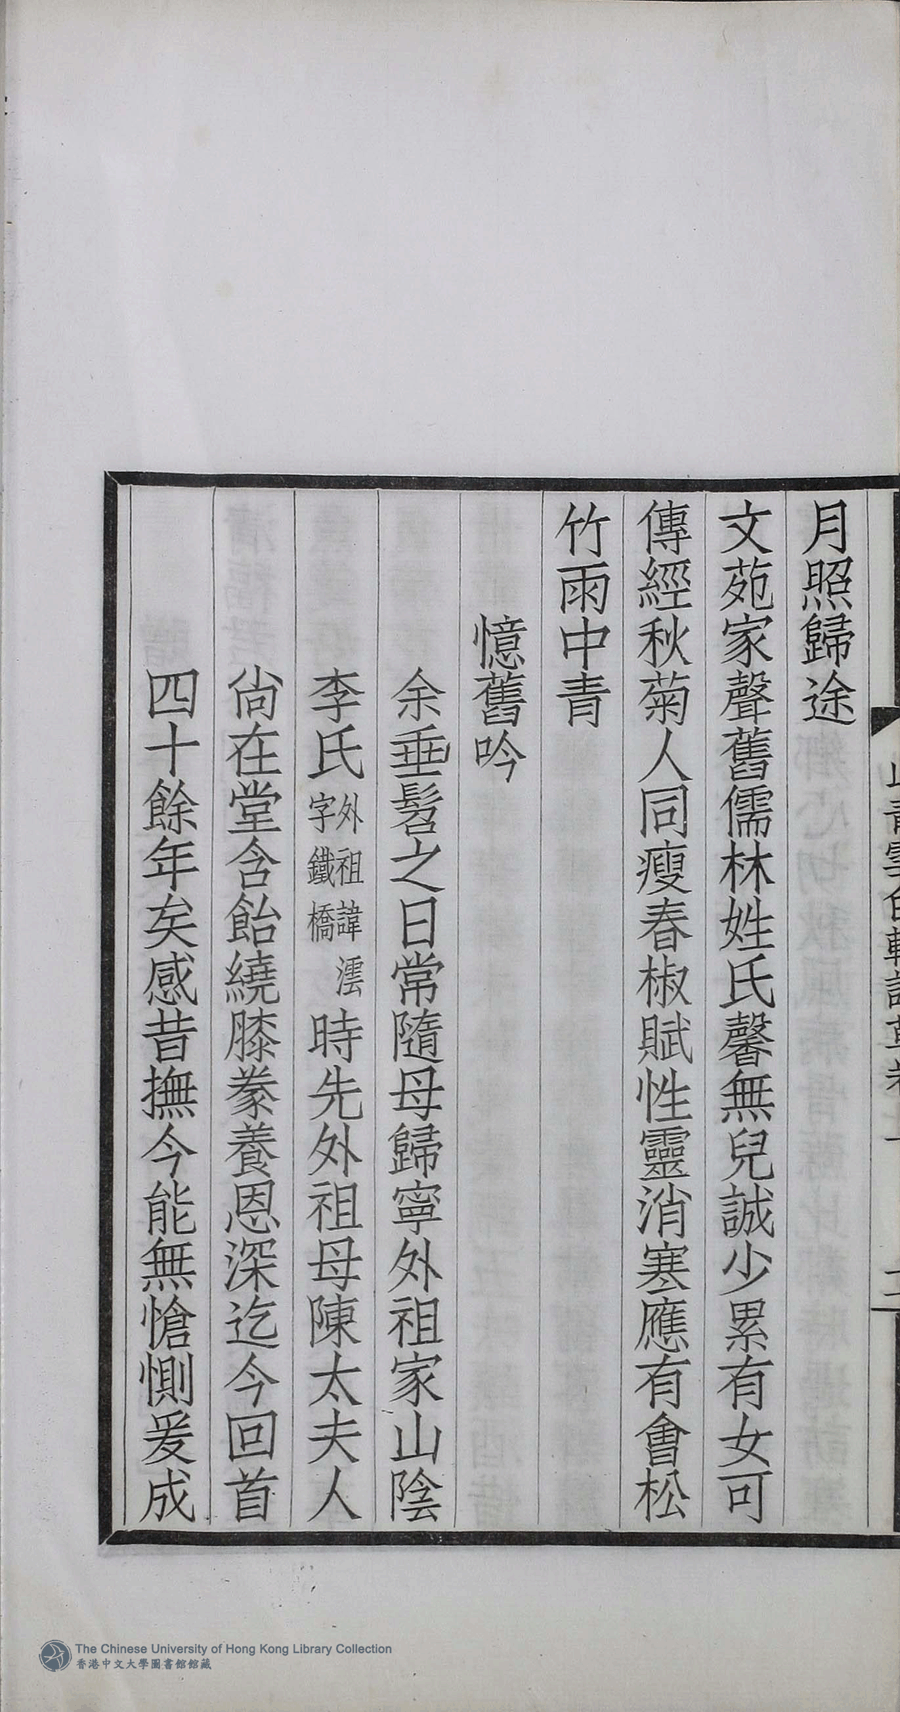 月照歸途
文苑家聲舊儒林姓氏馨無兒誠少累有女可
傳經秋菊人同瘦春椒賦性靈消寒應有會松
竹雨中青
憶舊吟
余垂髫之日常隨母歸寧外祖家山陰
李氏外祖諱澐字鐵橋時先外祖母陳太夫人
尙在堂含飴繞膝豢養恩深迄今回首
四十餘年矣感昔撫今能無愴惻爰成
The Chinese University of Hong Kong Library Collection
香港中文大學圖書館館藏